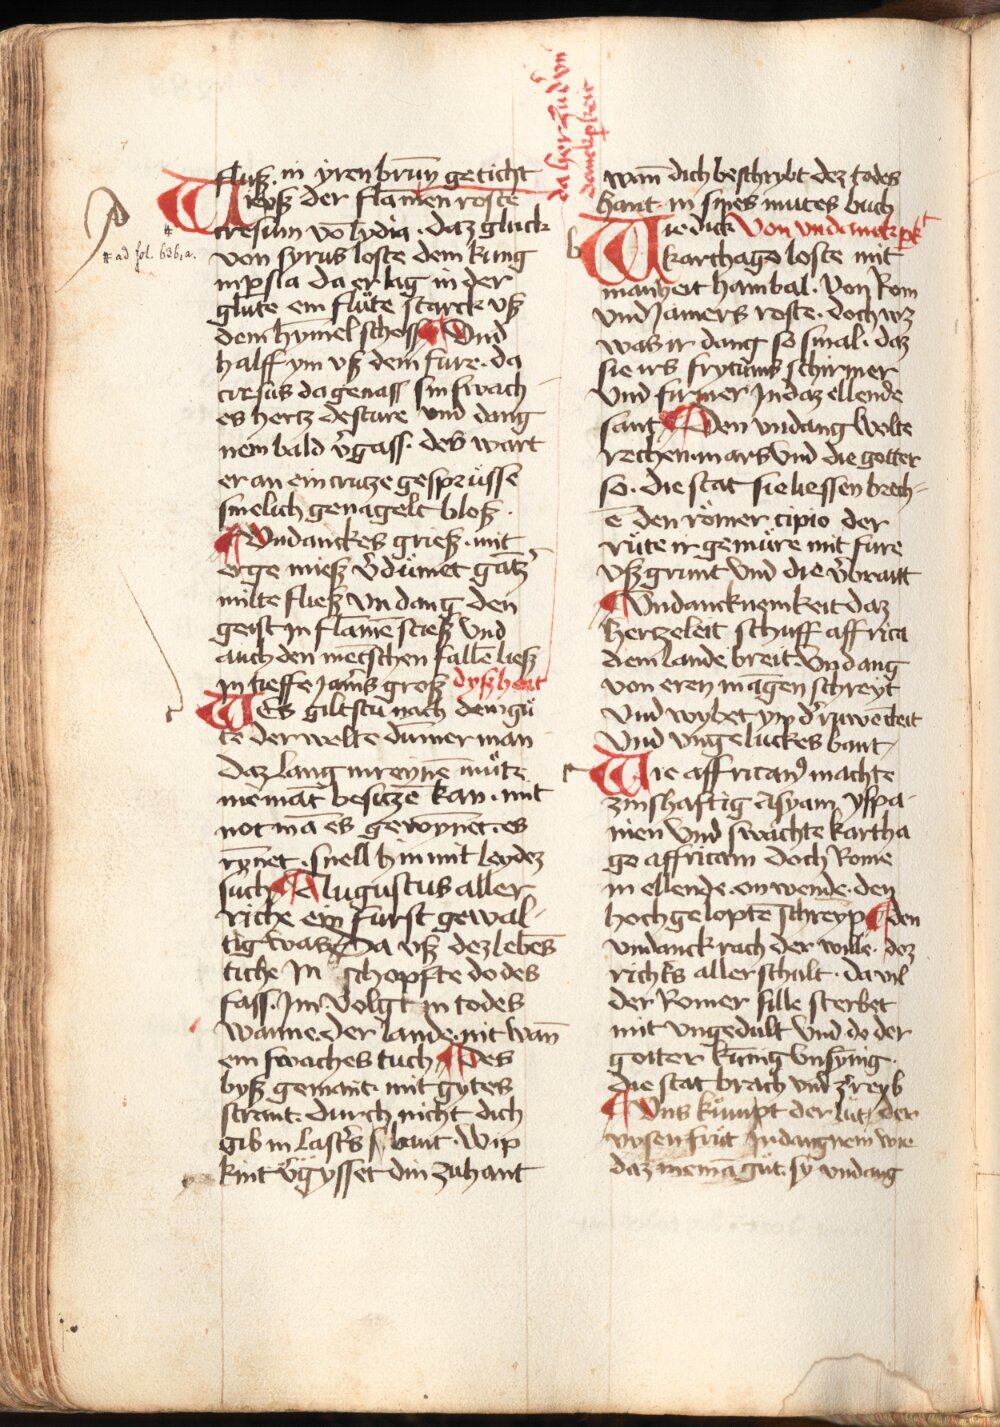 fluß. in yren brūn geticht
Wieuß der flamen roste
cresum vō lydia. daz gluck
von syrus loste dem kung
in psia da er lag in der
glute ein flüte starck uß
dem hymel schoß Und
halff ym uß dem füre. da
cresus da genaß sin swach
es hertz desture und dang
nem bald v̄gass. des wart
er an ein crutze gesprüsse
smelich genagelt bloß.
Undanckes grieß. mit
erge mieß v̄dümet gātz
milte fließ vndang den
geist in flamē stieß vnd
auch den mētschen fallē ließ
in tieffe Jamers groß dyß hort
# ad fol. 636, a.
WEs giltstu nach dem gü
te der welte dumer man
daz lang in reynēm müte
niemāt besitzē kan. mit
not mā es gewynnet. es
rynnet. snell hin mit leydez
such Augustus aller
riche ein fürst gewal-
tig was Da uß dez lebēs
tiche In schopfte do des
fass. Im volgt in todes
wanne. der lande. nit wan
ein swaches tuch Des
byß gemant. mit gytes
strant. durch nicht dich
gib in lasters bant. wip
kint v̄gysset din zuhant
da her zu dvn
danckperkeit
wan̄ dich beschrybt dez todes
hant. in sines mutes buch
b
Wie dick Von undanckpkt
karthago loste mit
manheit hanibal. Von Rom
vnd Jamers roste. doch wz
was ir dang so smal. daz
sie irs frytums schirmer
Und firmer In daz ellende
sant Den undang wolte
rechen. mars vnd die gotter
so. die stat sie liessen brech-
ē den römer cipio der
rüte ir gemüre mit fure
uß grunt vnd die v̄brant
Undancknemkeit daz
hertzeleit schuff affrica
dem lande breit. Undang
von eren mangen schreyt
vnd wybet ym d' ruwē cleit
Und ungeluckes bant
Wie affrican9 machte
zinshaftig Asyam. yspa-
nien vnd swachte kartha
go affricam doch Rome
in ellende. on wende. den
hochgelopten schreyp den
undanck rach der wille. dez
richs aller schult. da vil
der Romer stille sterbet
mit vngedult vnd do der
gotter kunig vnsynig.
die stat brach vnd z'reyb
Uns kumpt der lüt der
wysen frut In dangnem wie
daz niemā gut. sy undang